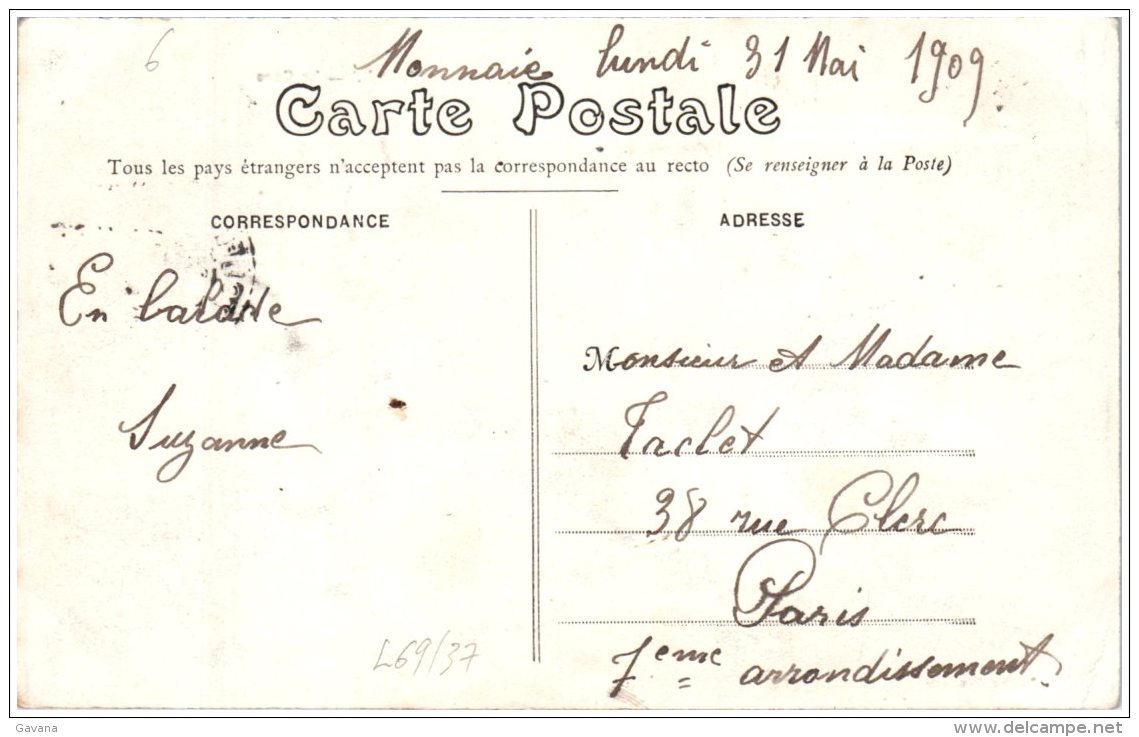 6
Monnaie lundi 31 Mai 1909
Carte Postale
Tous les pays étrangers n'acceptent pas la correspondance au recto (Se renseigner à la Poste)
CORRESPONDANCE
En balade
Suzanne
L69/37
ADRESSE
Monsieur et Madame
Taclet
38 rue Clerc
Paris
7eme arrondissement
Gavana
www.delcampe.net